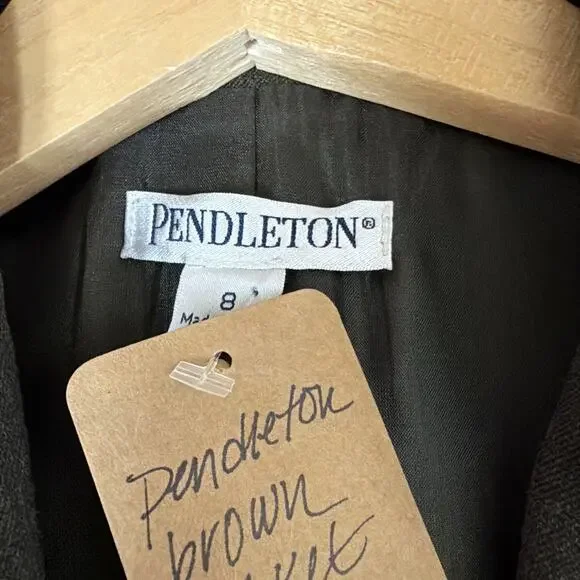 PENDLETON®
8
Mad
pendleton
brown